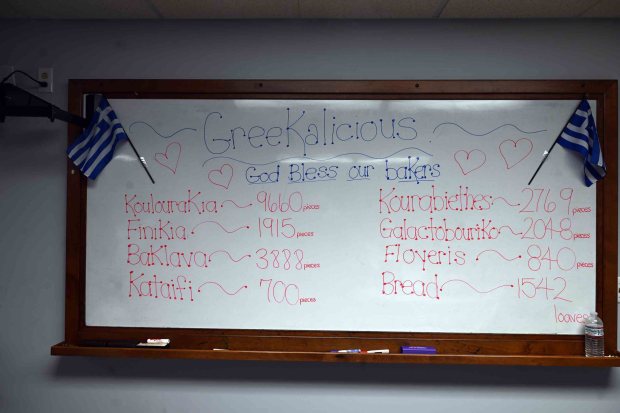 GreeKalicious
God Bless our bakers
KoulouraKia 9660 pieces
Finikia 1915 pieces
BaKlava 3888 pieces
Kataifi 700 pieces
Kourabiethes 2769 pieces
Galactobouriko 2048 pieces
Floyeris 840 pieces
Bread 1542
loaves